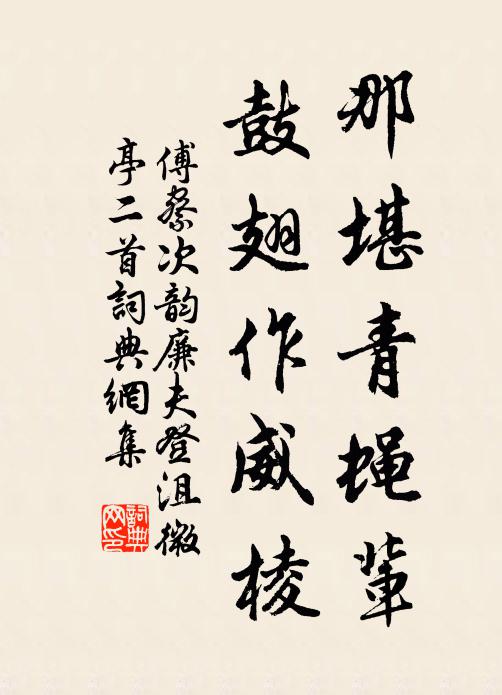 那堪青蝇輩
鼓翅作威棱
傅察次韵廉夫登沮微
亭二首詞典網集
詞典网印